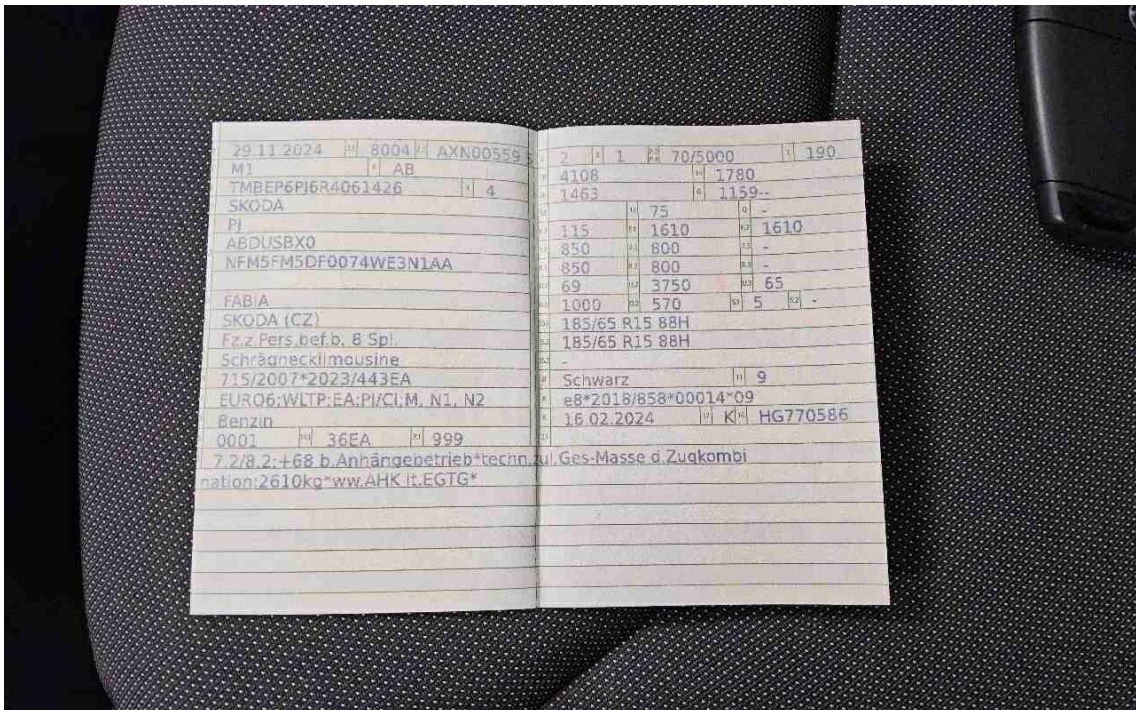 29.11.2024 8004 AXN00559 5
M1 AB
TMBEP6PJ6R4061426 4
SKODA
PJ
ABDUSBX0
NFM5FM5DF0074WE3N1AA
FABIA
SKODA (CZ)
Fz.z.Pers.bef.b. 8 Spl.
Schräghecklimousine
715/2007*2023/443EA
EURO6;WLTP;EA;PI/CI;M, N1, N2
Benzin
0001 36EA 999
2 1 70/5000 190
4108 1780
1463 1159--
75 -
115 1610 1610
850 800 -
850 800 -
69 3750 65
1000 570 5 -
185/65 R15 88H
185/65 R15 88H
-
Schwarz 9
e8*2018/858*00014*09
16.02.2024 K HG770586
7.2/8.2:+68 b.Anhängebetrieb*techn.zul.Ges-Masse d.Zugkombi
nation:2610kg*ww.AHK lt.EGTG*